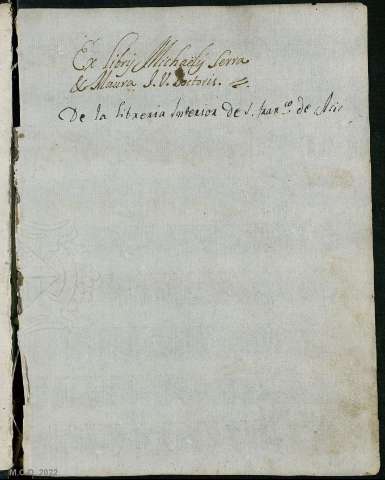 Ex Libris Michaelis Serra
& Maura J. V. Doctoris.
De la libreria Interior de S. fran.co de Asis
M.C.D. 2022